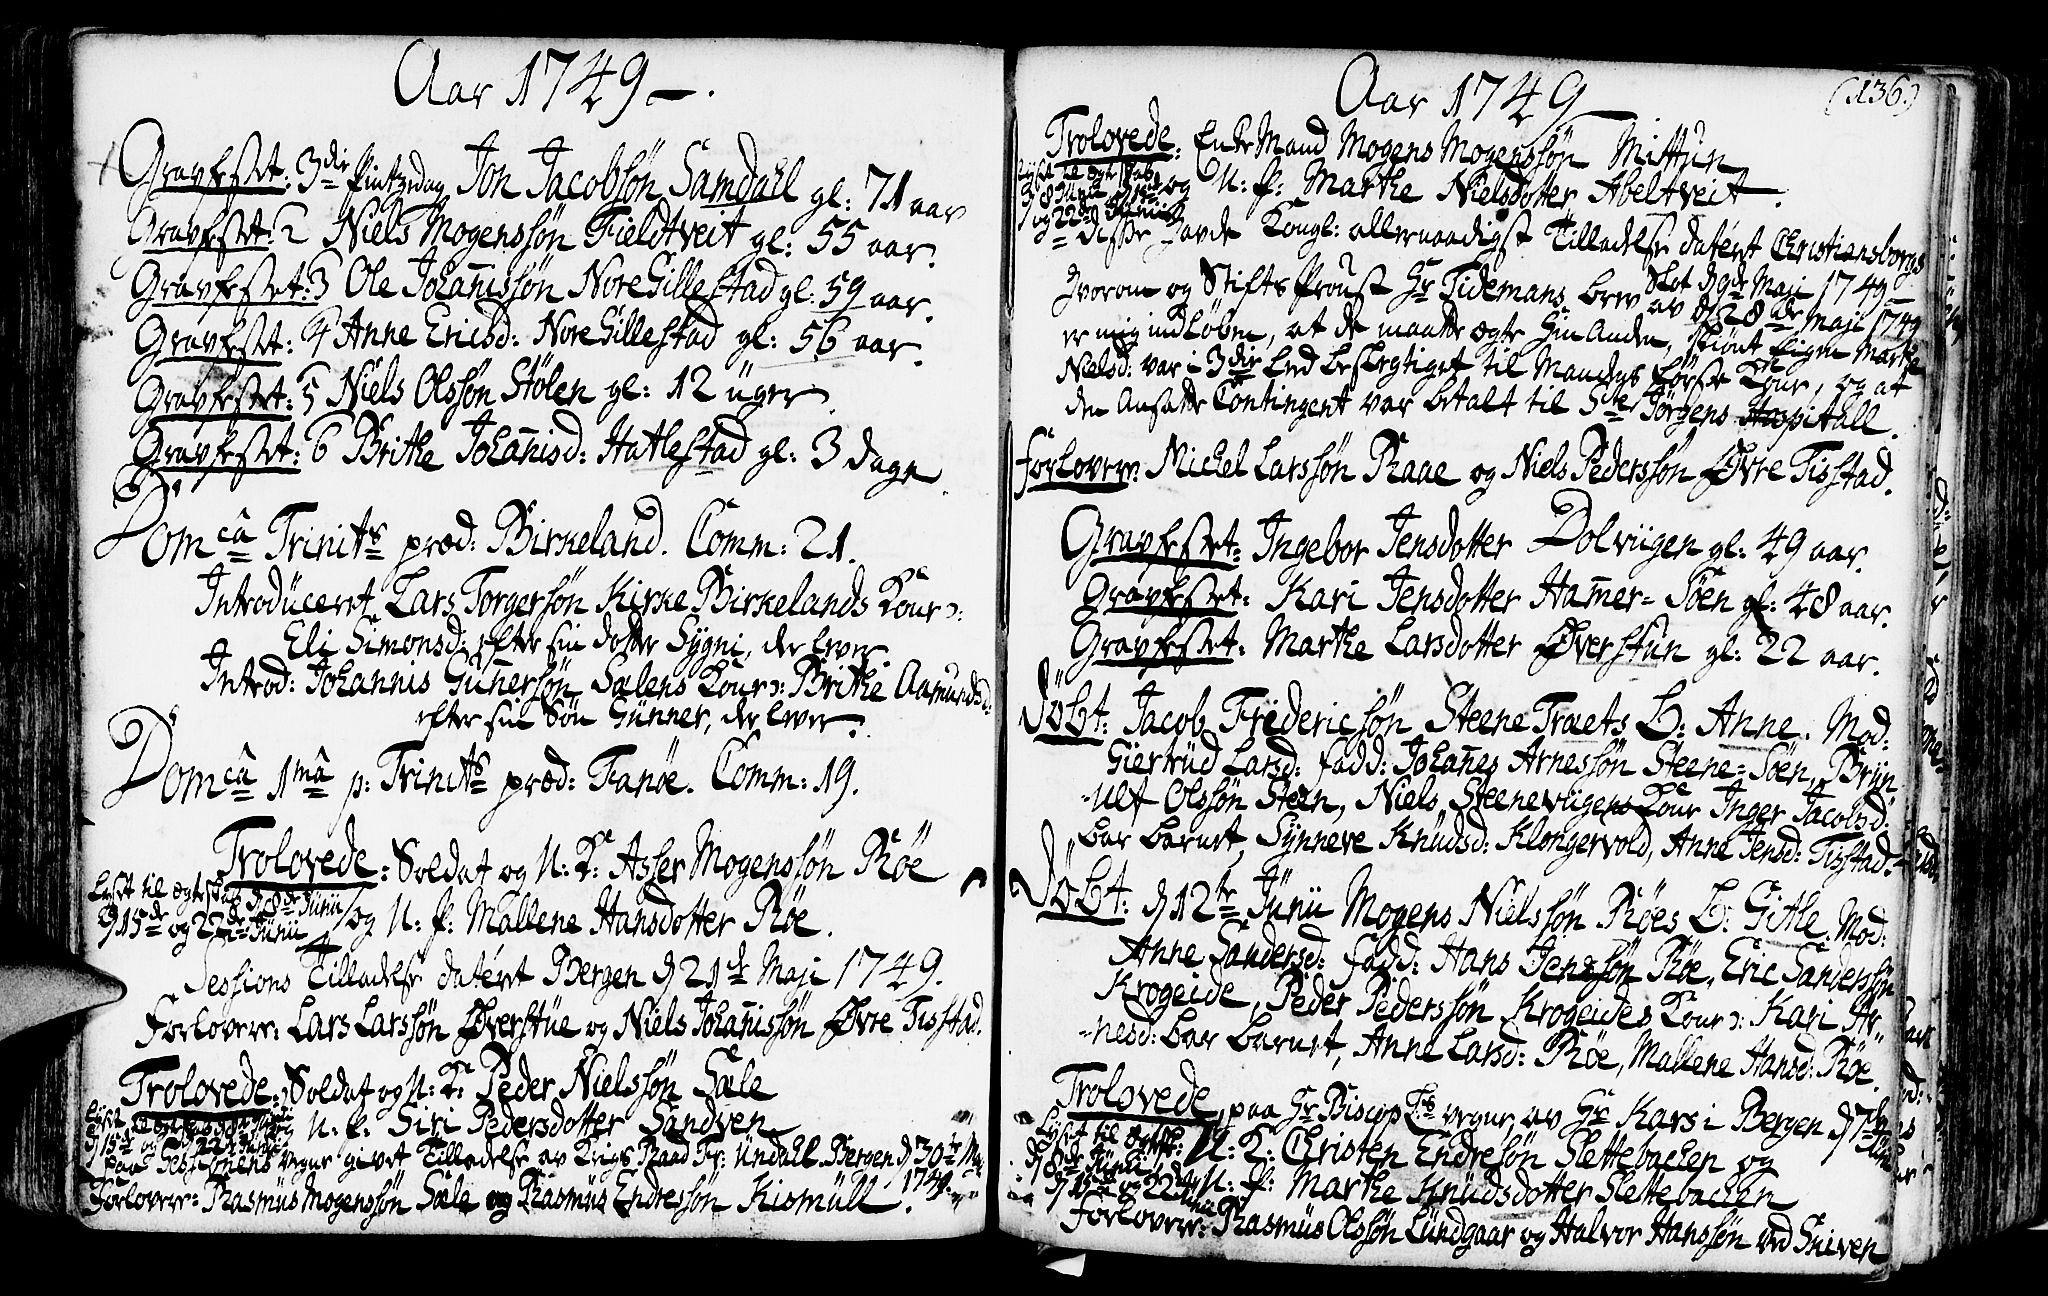 Aar 1749 –.
Gravfæstet: 3die Pintzedag Jon Jacobsøn Samdahl gl: 71 aar
Gravfæstet: 2 Niels Mogenssøn Fieldtveit gl: 55 aar.
Gravfæstet: 3 Ole Johanissøn NoreGillestad gl: 59 aar.
Gravfæstet: 4 Anne Ericsd: NoreGillestad gl: 56 aar.
Gravfæstet: 5 Niels Olssøn Stølen gl: 12 uger.
Gravfæstet: 6 Brithe Johanisd: Hatlestad gl: 3 dage.
Domcâ Trinits præd: Birkeland. Comm: 21.
Introduceret Lars Torgersøn Kirke Birkelands Kone:
Eli Simonsd: efter sin dotter Sygni, der lever.
Introd: Johannis Gunnersøn Sælens Kone: Brithe Aamundsd:
efter sin Søn Gunner, der lever.
Domcâ 1mâ p: Trinits præd: Fanøe. Comm: 19.
Trolovede: Soldat og U: K: Asser Mogenssøn Røe
lyst til ægteskab d 8de Junii
d 15de og 22de Junii
og U: P: Mallene Hansdotter Røe.
Sessions Tilladelse datéret Bergen d 21de Maji 1749.
Forlovere: Lars Larssøn Øverstue og Niels Johanissøn Øvre Tisstad.
Trolovede: Soldat og U: K: Peder Nielssøn Sæle
U: P: Siri Pedersdotter Sandven
paa Sessionens vegne givet Tilladelse av Krigs Raad Undall Bergen d 30te Maj 1749.
Forlovere: Rasmus Mogenssøn Sæle og Rasmus Endressøn Kismull.
Aar 1749
(136.)
Trolovede: Enke Mand Mogens Mogenssøn Mittun
U: P: Marthe Nielsdotter Abeltveit.
lyst til ægteskab
d 8 Junii 15de og
og 22de Junii
disse havde Kongl: allernaadigst Tilladelse datéret Christiansborgs
Slot d 9de Maji 1749
hvorom og Stifts Proust Hr Tidemans brev av d 28de Maji 1749
er mig indløben, at de maatte ægte hin anden, skiønt Pigen Marthe
Nielsd: var i 3die Led beslegtiget til Mandens første Kone, og at
den ansatte Contingent var betalt til Ste Jørgens Hospitall.
Forlovere: Michel Larssøn Raae og Niels Pederssøn Øvre Tisstad.
Gravfæstet: Ingebor Jensdotter Dolviigen gl: 49 aar.
Gravfæstet: Kari Jensdotter Hamer-Søen gl: 48 aar.
Gravfæstet: Marthe Larsdotter Øverstun gl: 22 aar.
Døbt: Jacob Fridericsøn Steene Træets b: Anne. Mod:
Giertrud Larsd: fadd: Johanes Arnessøn Steene-Søen, Bryn
-ulf Olssøn Steen, Niels Steeneviigens Kone Inger Jacobsd:
bar barnet, Synneve Knudsd: Klongervold, Anne Jensd: Tisstad.
Døbt: d 12te Junii Mogens Nielssøn Røes b: Githe. Mod:
Anne Sandersd: fadd: Hans Jenssøn Røe, Eric Sanderssøn
Krogeide, Peder Pederssøn Krogeides Kone: Kari Ar-
-nesd: bar barnet, Anne Larsd: Røe, Mallene Hansd: Røe.
Trolovede, paa Hr Biscop vegne, av Hr Kars i Bergen d 7de Junii
lyst til ægtsk:
d 8de Junii
d 15de og 22de
U: K: Christen Endresøn Slettebachen og
U: P: Marthe Knudsdotter Slettebachen
Forlovere: Rasmus Olssøn Lundgaar og Halvor Hanssøn ved Sniven